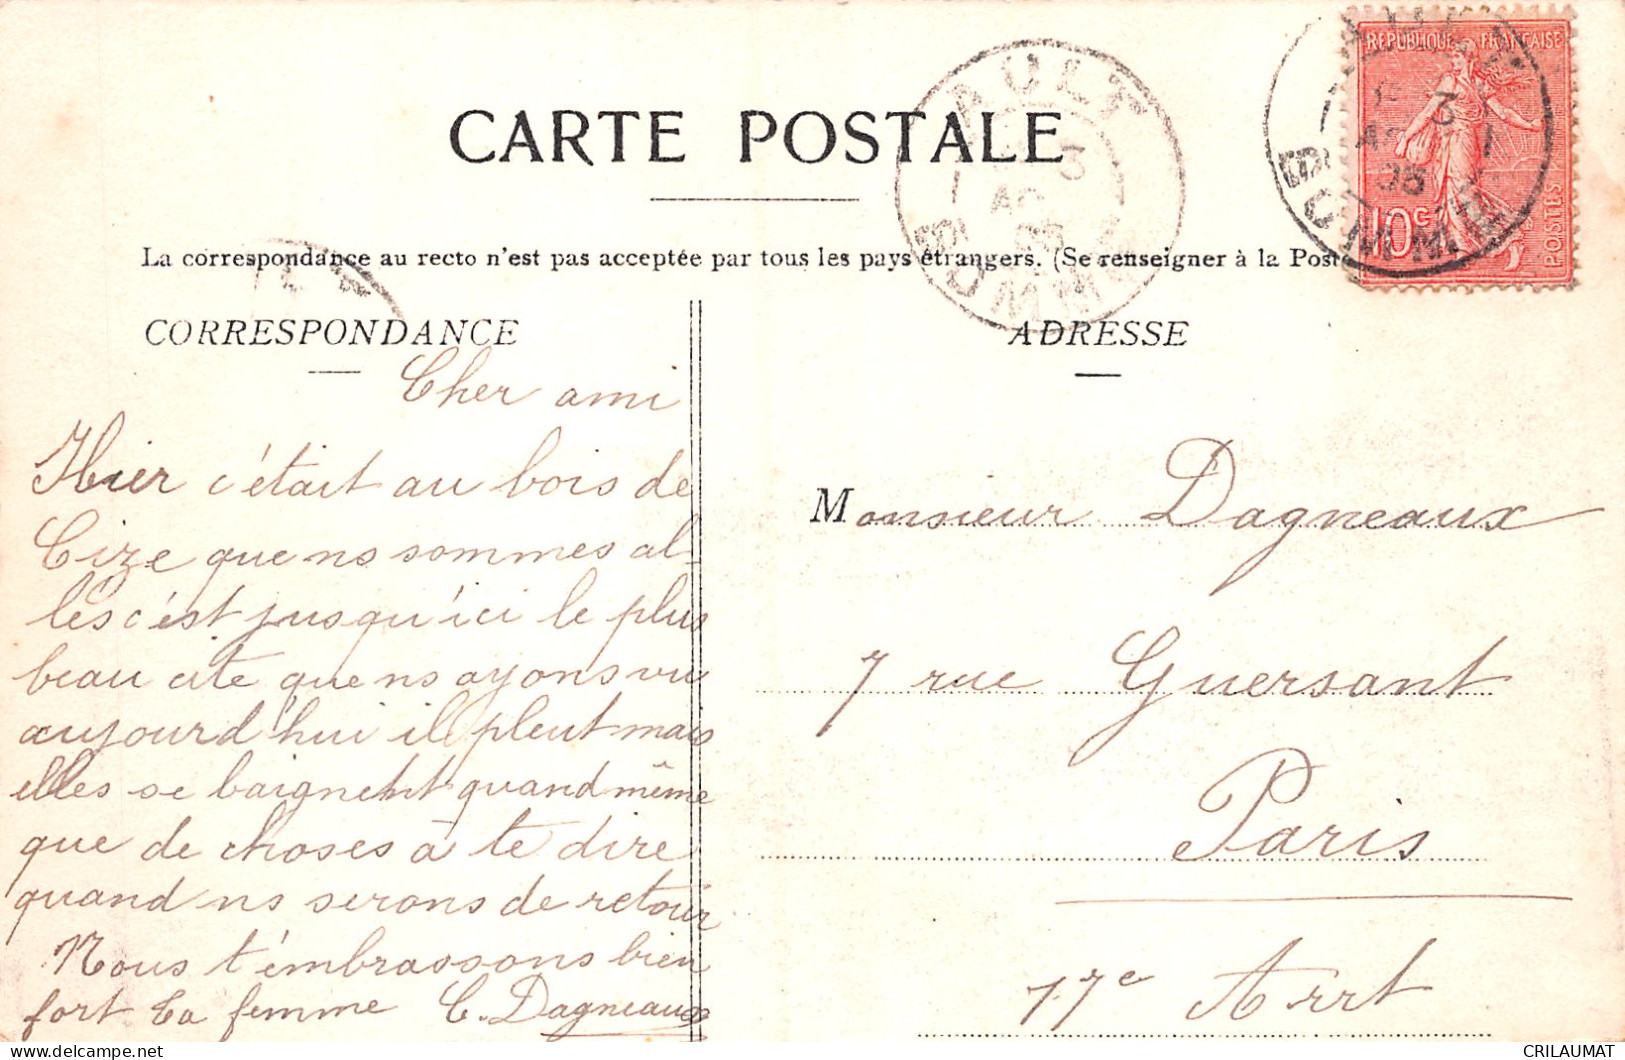 CARTE POSTALE
La correspondance au recto n'est pas acceptée par tous les pays étrangers. (Se renseigner à la Poste
CORRESPONDANCE
Cher ami
Hier c'était au bois de
Cize que ns sommes al-
lés c'est jusqu'ici le plus
beau site que ns ayons vu
aujourd'hui il pleut mais
elles se baignent quand même
que de choses à te dire
quand ns serons de retour
Nous t'embrassons bien
fort ta femme C. Dagneaux
ADRESSE
Monsieur Dagneaux
7 rue Guersant
Paris
17e Arrt
REPUBLIQUE FRANÇAISE
10c
POSTES
AULT
3
SOMME
3
05
SOMME
CRILAUMAT
delcampe.net